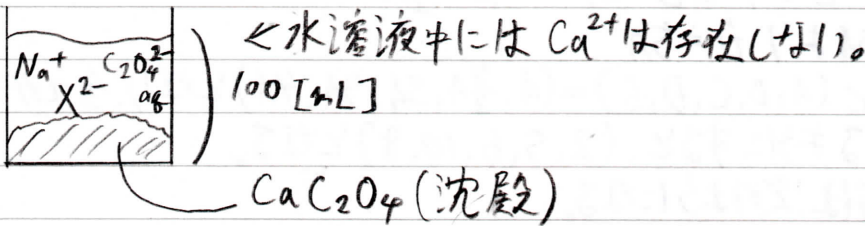 Na⁺ C₂O₄²⁻
X²⁻ aq
<水溶液中にはCa²⁺は存在しない。
100[mL]
CaC₂O₄(沈殿)